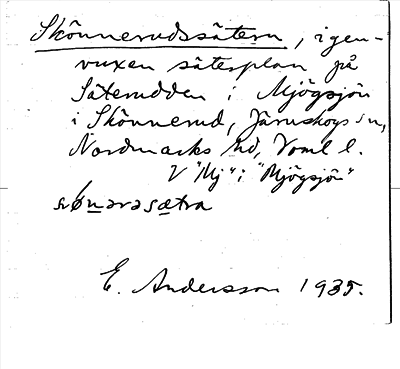 Skönnerudssätern, igen-
vuxen säterplan på
Säterudden i Mjögsjön
i Skönnerud, Järnskogs sn,
Nordmarks hd, Vrml l.
V "Mj" i "Mjögsjön"
E. Andersson 1935.